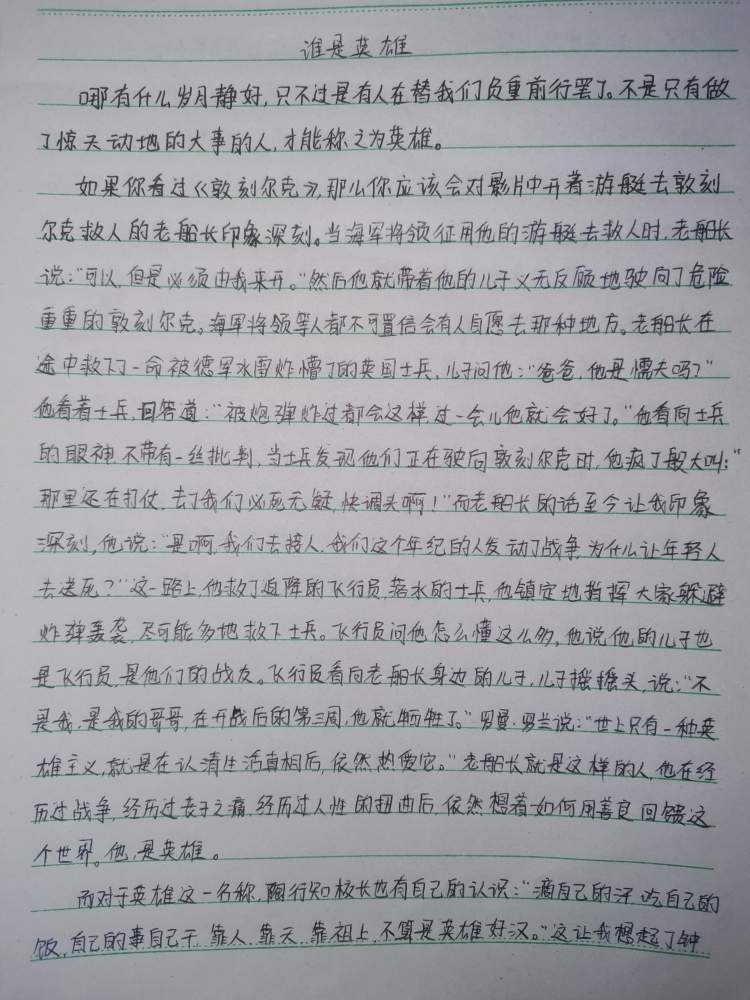 谁是英雄
哪有什么岁月静好,只不过是有人在替我们负重前行罢了。不是只有做
了惊天动地的大事的人,才能称之为英雄。
如果你看过《敦刻尔克》,那么你应该会对影片中开着游艇去敦刻
尔克救人的老船长印象深刻。当海军将领征用他的游艇去救人时,老船长
说:“可以,但是必须由我来开。”然后他就带着他的儿子义无反顾地驶向了危险
重重的敦刻尔克。海军将领等人都不可置信会有人自愿去那种地方。老船长在
途中救下了一命被德军水雷炸懵了的英国士兵,儿子问他:“爸爸,他是懦夫吗?”
他看着士兵,回答道:“被炮弹炸过都会这样,过一会儿他就会好了。”他看向士兵
的眼神,不带有一丝批判,当士兵发现他们正在驶向敦刻尔克时,他疯了般大叫:“
那里还在打仗,去了我们必死无疑,快调头啊!”而老船长的话至今让我印象
深刻,他说:“是啊,我们去接人,我们这个年纪的人发动了战争,为什么让年轻人
去送死?”这一路上,他救了迫降的飞行员,落水的士兵,他镇定地指挥大家躲避
炸弹轰袭,尽可能多地救下士兵。飞行员问他怎么懂这么多,他说他的儿子也
是飞行员,是他们的战友。飞行员看向老船长身边的儿子,儿子摇摇头,说:“不
是我,是我的哥哥,在开战后的第三周,他就牺牲了。”罗曼·罗兰说:“世上只有一种英
雄主义,就是在认清生活真相后,依然热爱它。”老船长就是这样的人,他在经
历过战争,经历过丧子之痛,经历过人性的扭曲后,依然想着如何用善良回馈这
个世界。他,是英雄。
而对于英雄这一名称,陶行知校长也有自己的认识:“滴自己的汗,吃自己的
饭,自己的事自己干,靠人,靠天,靠祖上,不算是英雄好汉。”这让我想起了钟